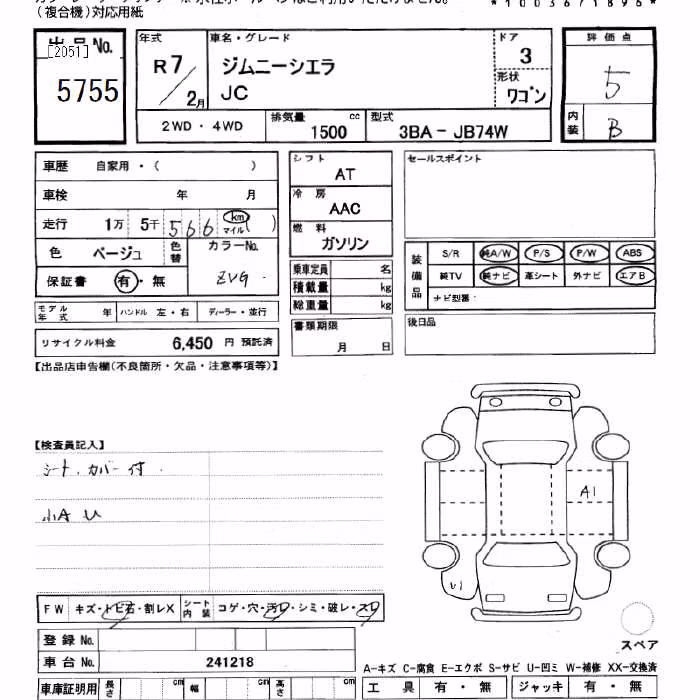 (複合機)対応用紙
*10036718 96*
出品No.
[2051]
5755
年式
R7/2月
車名・グレード
ジムニーシエラ
JC
ドア
3
形状
ワゴン
評価点
5
内装
B
2WD・4WD
排気量 cc
1500
型式
3BA-JB74W
車歴 自家用・( )
車検 年 月
走行 1万 5千 566 km マイル ( )
色 ベージュ 色替 カラーNo.
ZVG
保証書 有・無
モデル年式 年 ハンドル 左・右 ディーラー・並行
リサイクル料金 6,450 円 預託済
シフト
AT
冷房
AAC
燃料
ガソリン
乗車定員 名
積載量 kg
総重量 kg
書類期限
月 日
セールスポイント
装備品
S/R 純A/W P/S P/W ABS
純TV 純ナビ 革シート 外ナビ エアB
ナビ型番:
後日品
【出品店申告欄(不良箇所・欠品・注意事項等)】
【検査員記入】
シートカバー付
小A U
A1
U1
スペア
FW キズ・トビ石・割レX シート内装 コゲ・穴・汚レ・シミ・破レ・スレ
登録No.
車台No. 241218
A-キズ C-腐食 E-エクボ S-サビ U-凹ミ W-補修 XX-交換済
車庫証明用 長さ cm 幅 cm 高さ cm
工具 有・無 ジャッキ 有・無